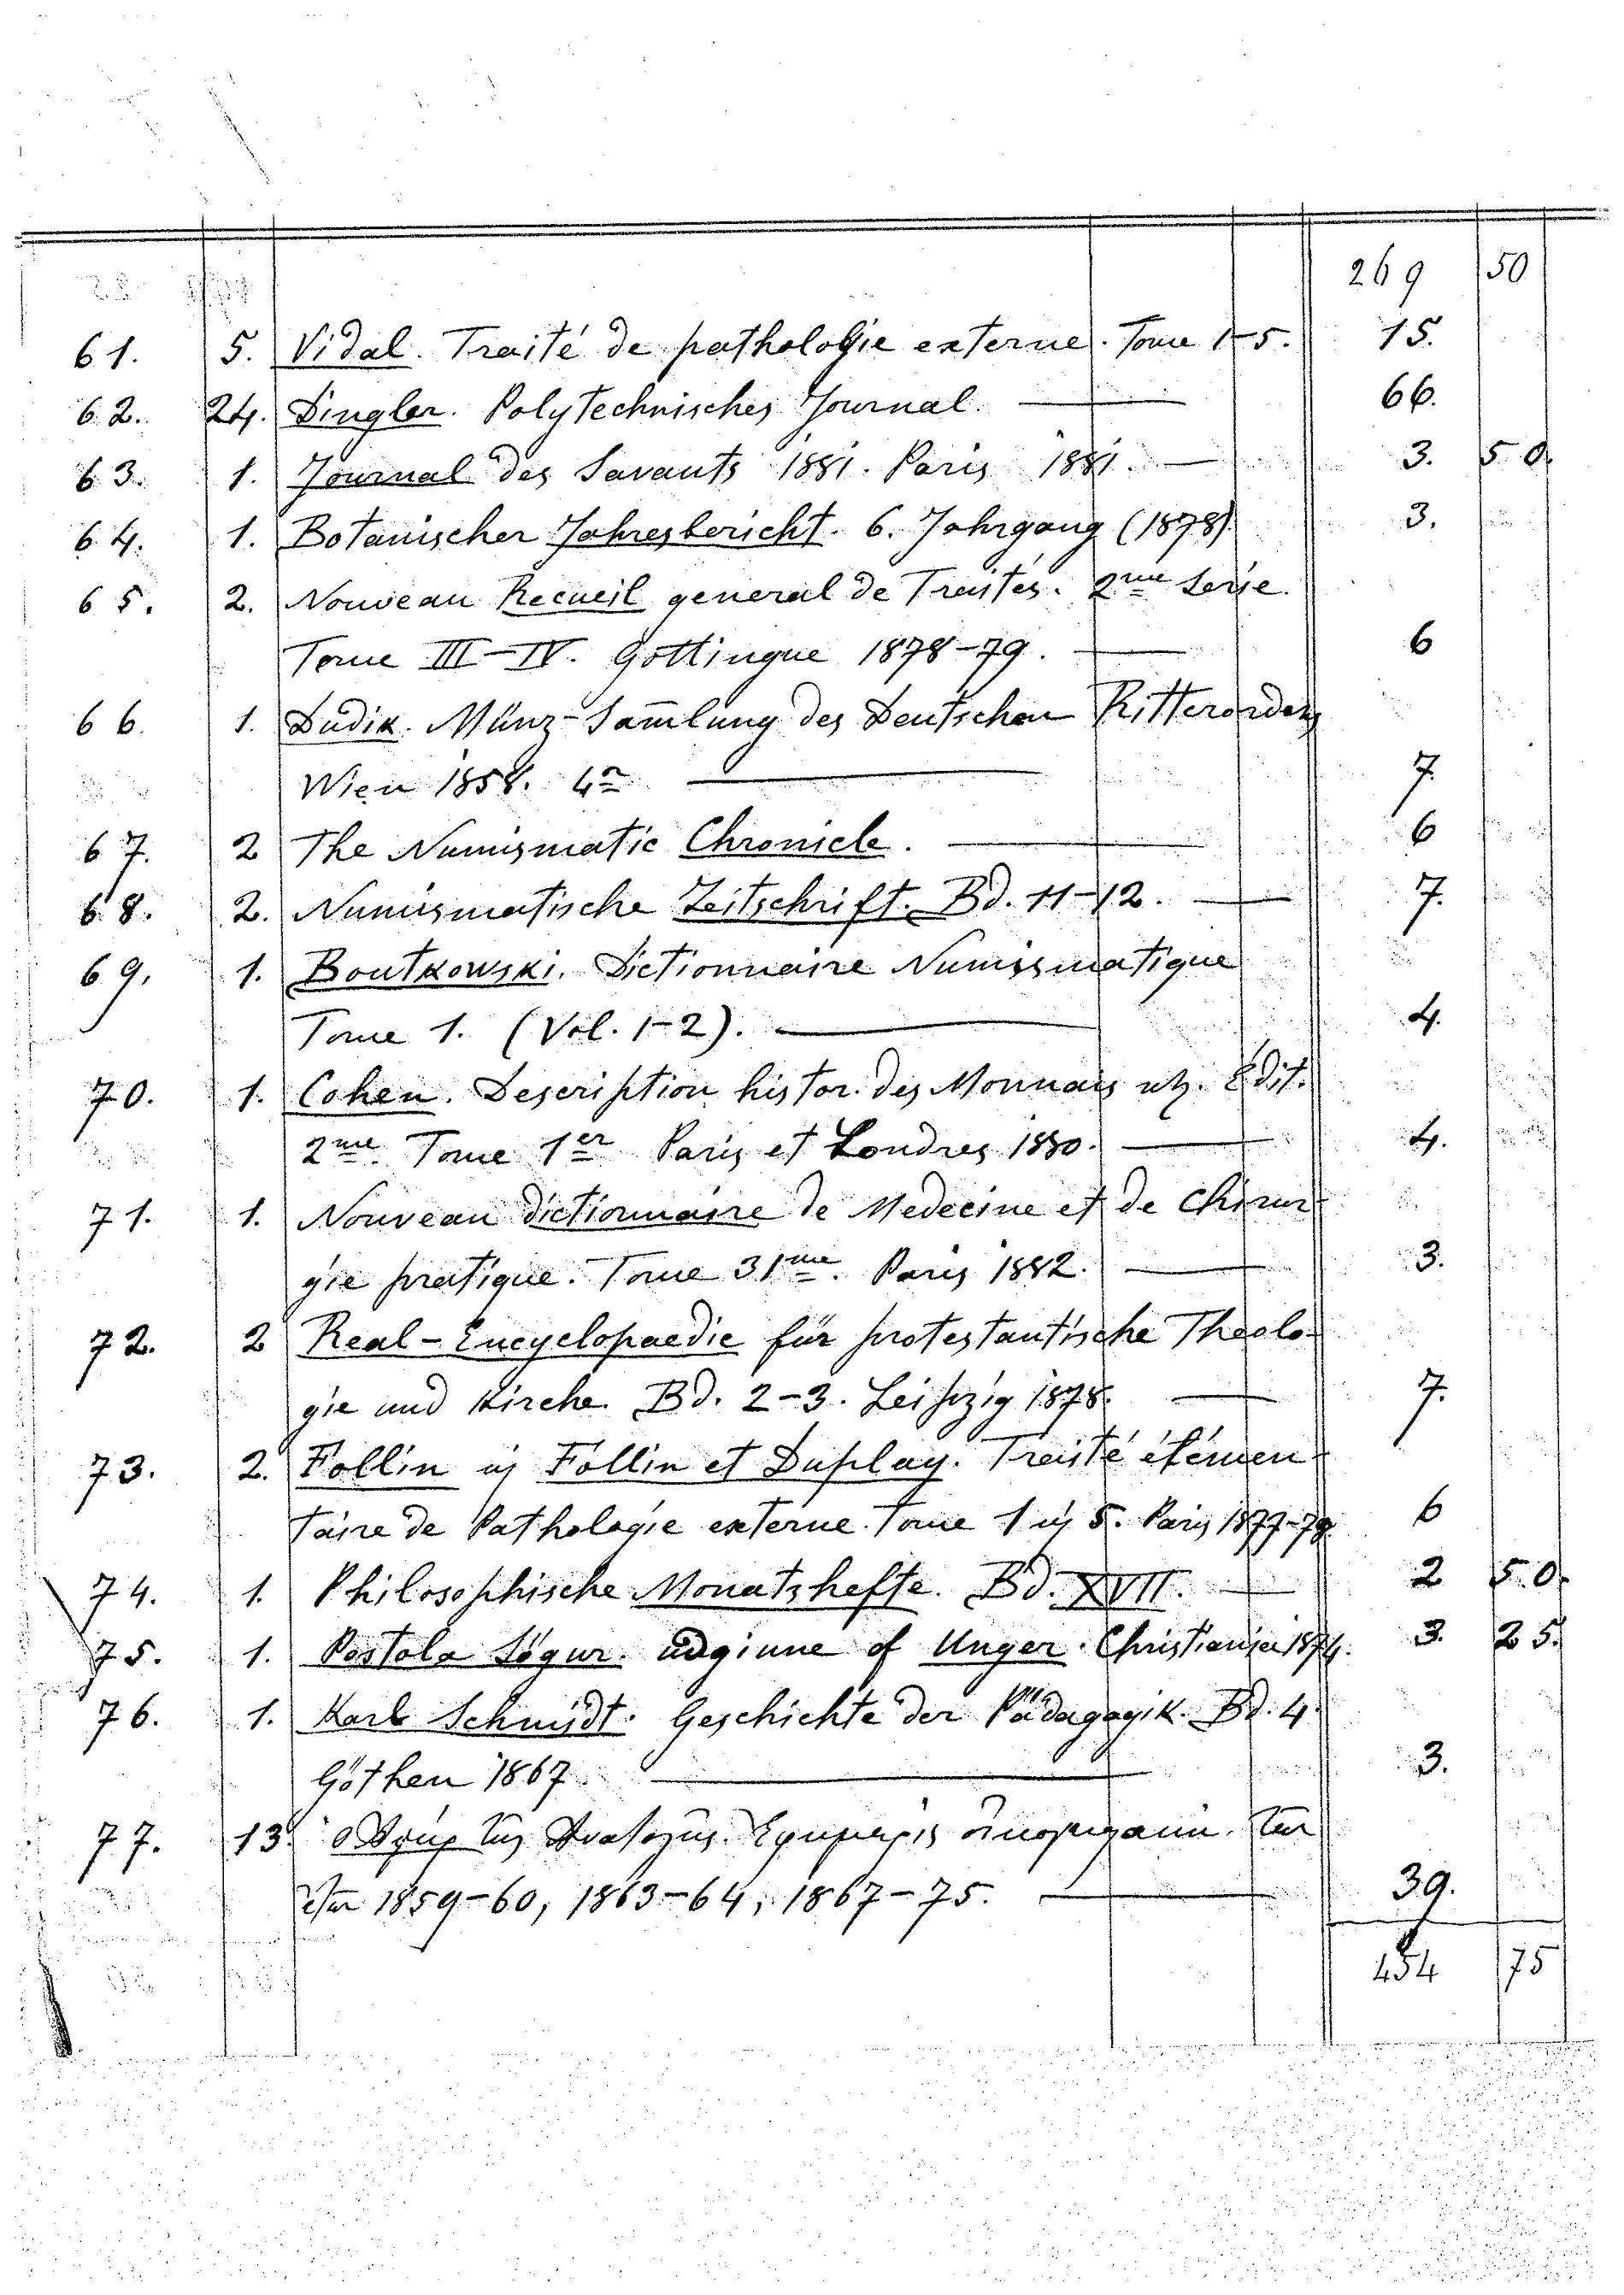 269 50
61. 5. Vidal. Traité de pathologie externe. Tome 1-5. 15.
62. 24. Dingler. Polytechnisches Journal. — 66.
63. 1. Journal des Savants 1881. Paris 1881. — 3. 50.
64. 1. Botanischer Jahresbericht. 6. Jahrgang (1878) 3.
65. 2. Nouveau Recueil general de Traités. 2me Serie.
Tome III-IV. Gottingue 1878-79. — 6
66. 1. Dudik. Münz-Sam̄lung des Deutschen Ritterordens
Wien 1858. 4o — 7.
67. 2 The Numismatic Chronicle. — 6
68. 2. Numismatische Zeitschrift. Bd. 11-12. — 7.
69. 1. Boutkowski. Dictionnaire Numismatique
Tome 1. (Vol. 1-2). — 4.
70. 1. Cohen. Description histor. des Monnais etz. Edit.
2me Tome 1er Paris et Londres 1880. — 4.
71. 1. Nouveau dictionnaire de Medecine et de Chirur
gie pratique. Tome 31me. Paris 1882. — 3.
72. 2 Real-Encyclopaedie für protestantische Theolo-
gie und Kirche. Bd. 2-3. Leipzig 1878. — 7.
73. 2. Follin Follin et Duplay. Traité élémen-
taire de Pathologie externe. Tome 1 5. Paris 1877-79. 6
74. 1. Philosophische Monatshefte. Bd. XVII. — 2 50.
75. 1. Postola Sögur. udginne of Unger. Christiania 1874. 3. 25.
76. 1. Karl Schmidt. Geschichte der Pädagogik. Bd. 4.
Göthen 1867. — 3.
77. 13.
1859-60, 1863-64, 1867-75. — 39.
454 75